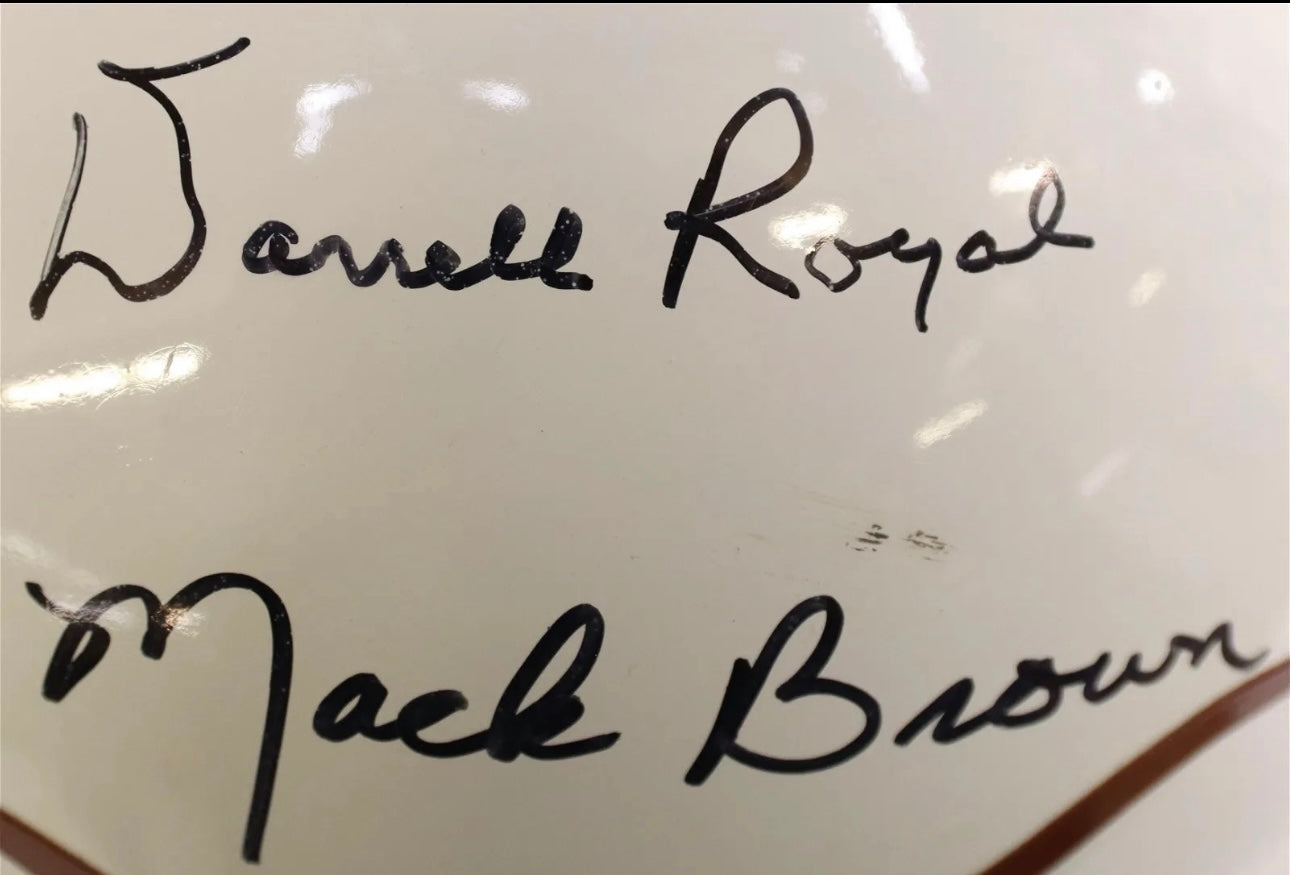 Darrell Royal
Mack Brown